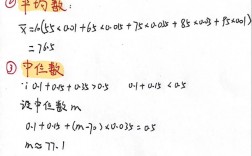 ② 平均数:
x̄=10(55×0.01+65×0.015+75×0.035+85×0.03+95×0.01)
=76.5
③ 中位数
∵ 0.1+0.15+0.35>0.5 0.1+0.15<0.5
设中位数m
0.1+0.15+(m-70)×0.035=0.5
m≈77.1